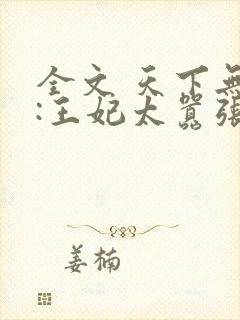 全文 天下無
:王妃太囂張
姜楠